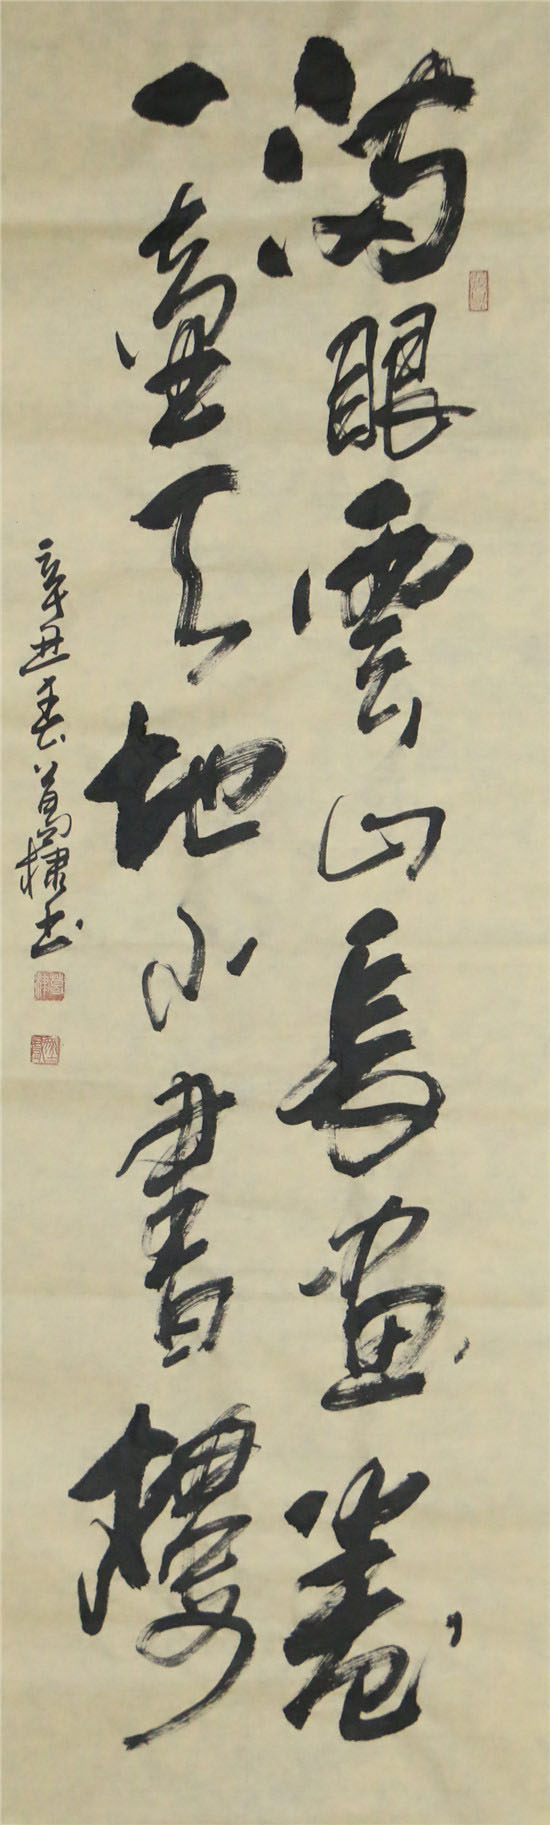 滿眼雲山長畫卷
一壺天地小書樓
辛丑春葛棣书